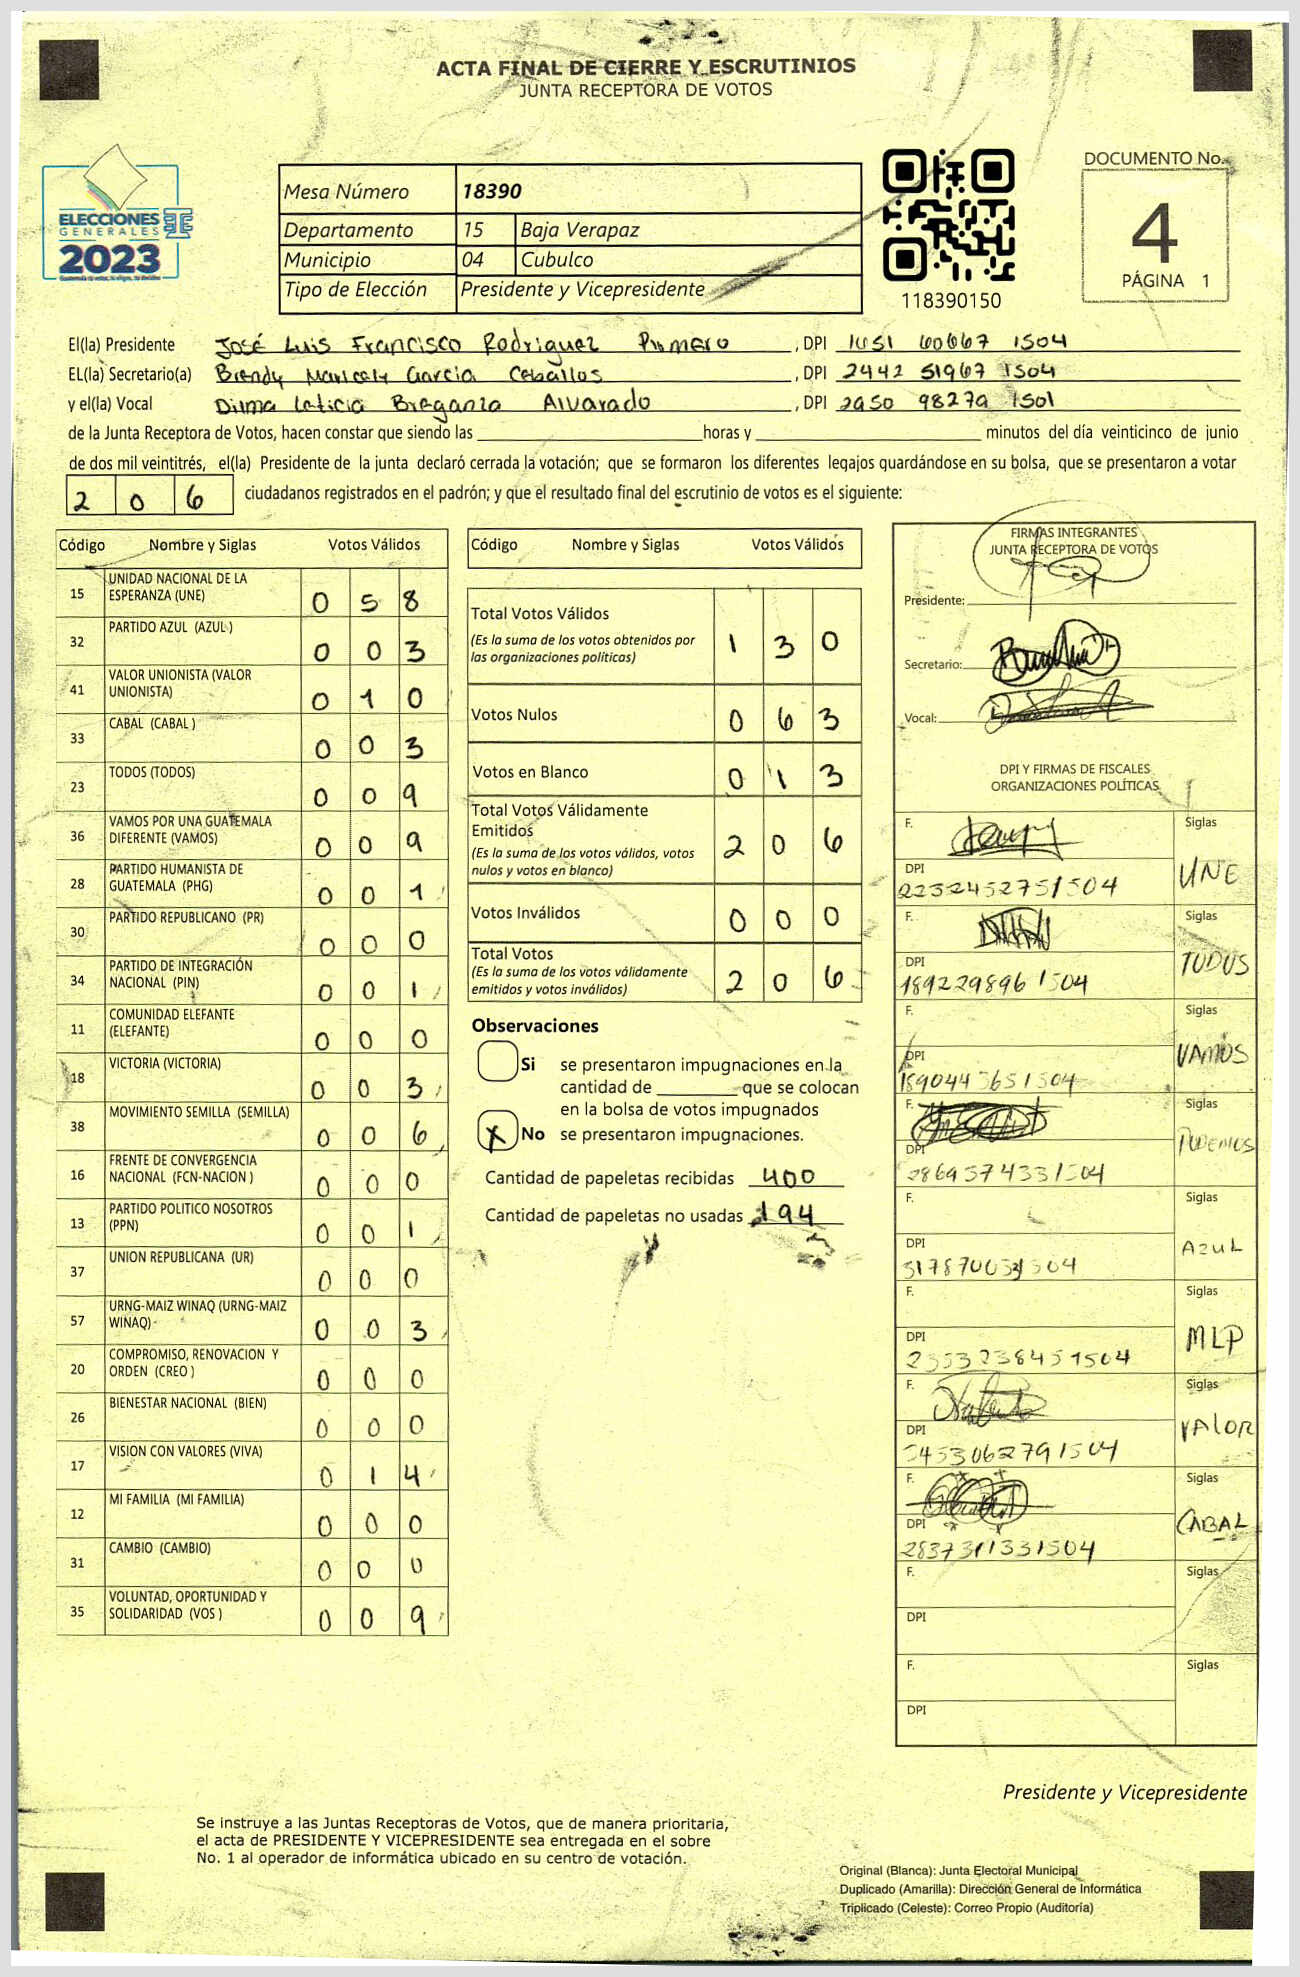 ACTA FINAL DE CIERRE Y ESCRUTINIOS
JUNTA RECEPTORA DE VOTOS
ELECCIONES
GENERALES
2023
Mesa Número 18390
Departamento 15 Baja Verapaz
Municipio 04 Cubulco
Tipo de Elección Presidente y Vicepresidente
118390150
DOCUMENTO No.
4
PÁGINA 1
El(la) Presidente José Luis Francisco Rodriguez Primero, DPI 1651 60667 1504
EL(la) Secretario(a) Brendy Maricely García Ceballos, DPI 2442 51967 1504
y el(la) Vocal Dilma Leticia Breganza Alvarado, DPI 2950 98279 1501
de la Junta Receptora de Votos, hacen constar que siendo las ____ horas y ____ minutos del día veinticinco de junio
de dos mil veintitrés, el(la) Presidente de la junta declaró cerrada la votación; que se formaron los diferentes legajos quardándose en su bolsa, que se presentaron a votar
2 0 6 ciudadanos registrados en el padrón; y que el resultado final del escrutinio de votos es el siguiente:
Código Nombre y Siglas Votos Válidos
15 UNIDAD NACIONAL DE LA ESPERANZA (UNE) 0 5 8
32 PARTIDO AZUL (AZUL ) 0 0 3
41 VALOR UNIONISTA (VALOR UNIONISTA) 0 1 0
33 CABAL (CABAL ) 0 0 3
23 TODOS (TODOS) 0 0 9
36 VAMOS POR UNA GUATEMALA DIFERENTE (VAMOS) 0 0 9
28 PARTIDO HUMANISTA DE GUATEMALA (PHG) 0 0 1
30 PARTIDO REPUBLICANO (PR) 0 0 0
34 PARTIDO DE INTEGRACIÓN NACIONAL (PIN) 0 0 1
11 COMUNIDAD ELEFANTE (ELEFANTE) 0 0 0
18 VICTORIA (VICTORIA) 0 0 3
38 MOVIMIENTO SEMILLA (SEMILLA) 0 0 6
16 FRENTE DE CONVERGENCIA NACIONAL (FCN-NACION ) 0 0 0
13 PARTIDO POLITICO NOSOTROS (PPN) 0 0 1
37 UNION REPUBLICANA (UR) 0 0 0
57 URNG-MAIZ WINAQ (URNG-MAIZ WINAQ) 0 0 3
20 COMPROMISO, RENOVACION Y ORDEN (CREO ) 0 0 0
26 BIENESTAR NACIONAL (BIEN) 0 0 0
17 VISION CON VALORES (VIVA) 0 1 4
12 MI FAMILIA (MI FAMILIA) 0 0 0
31 CAMBIO (CAMBIO) 0 0 0
35 VOLUNTAD, OPORTUNIDAD Y SOLIDARIDAD (VOS ) 0 0 9
Código Nombre y Siglas Votos Válidos
Total Votos Válidos 1 3 0
(Es la suma de los votos obtenidos por
las organizaciones políticas)
Votos Nulos 0 6 3
Votos en Blanco 0 1 3
Total Votos Válidamente
Emitidos 2 0 6
(Es la suma de los votos válidos, votos
nulos y votos en blanco)
Votos Inválidos 0 0 0
Total Votos 2 0 6
(Es la suma de los votos válidamente
emitidos y votos inválidos)
Observaciones
Si se presentaron impugnaciones en la
cantidad de ____ que se colocan
en la bolsa de votos impugnados
X No se presentaron impugnaciones.
Cantidad de papeletas recibidas 400
Cantidad de papeletas no usadas 194
FIRMAS INTEGRANTES
JUNTA RECEPTORA DE VOTOS
Presidente:
Secretario:
Vocal:
DPI Y FIRMAS DE FISCALES
ORGANIZACIONES POLÍTICAS
F. Siglas
DPI 2232452751504 UNE
F. Siglas
DPI 189229896 1504 TODOS
F. Siglas
DPI VAMOS
F. Siglas
DPI 2869574331504 PODEMOS
F. Siglas
DPI AZUL
F. Siglas
DPI 2353238451504 MLP
F. Siglas
DPI VALOR
F. Siglas
DPI 2837311331504 CABAL
F. Siglas
DPI
F. Siglas
DPI
Presidente y Vicepresidente
Se instruye a las Juntas Receptoras de Votos, que de manera prioritaria,
el acta de PRESIDENTE Y VICEPRESIDENTE sea entregada en el sobre
No. 1 al operador de informática ubicado en su centro de votación.
Original (Blanca): Junta Electoral Municipal
Duplicado (Amarilla): Dirección General de Informática
Triplicado (Celeste): Correo Propio (Auditoría)